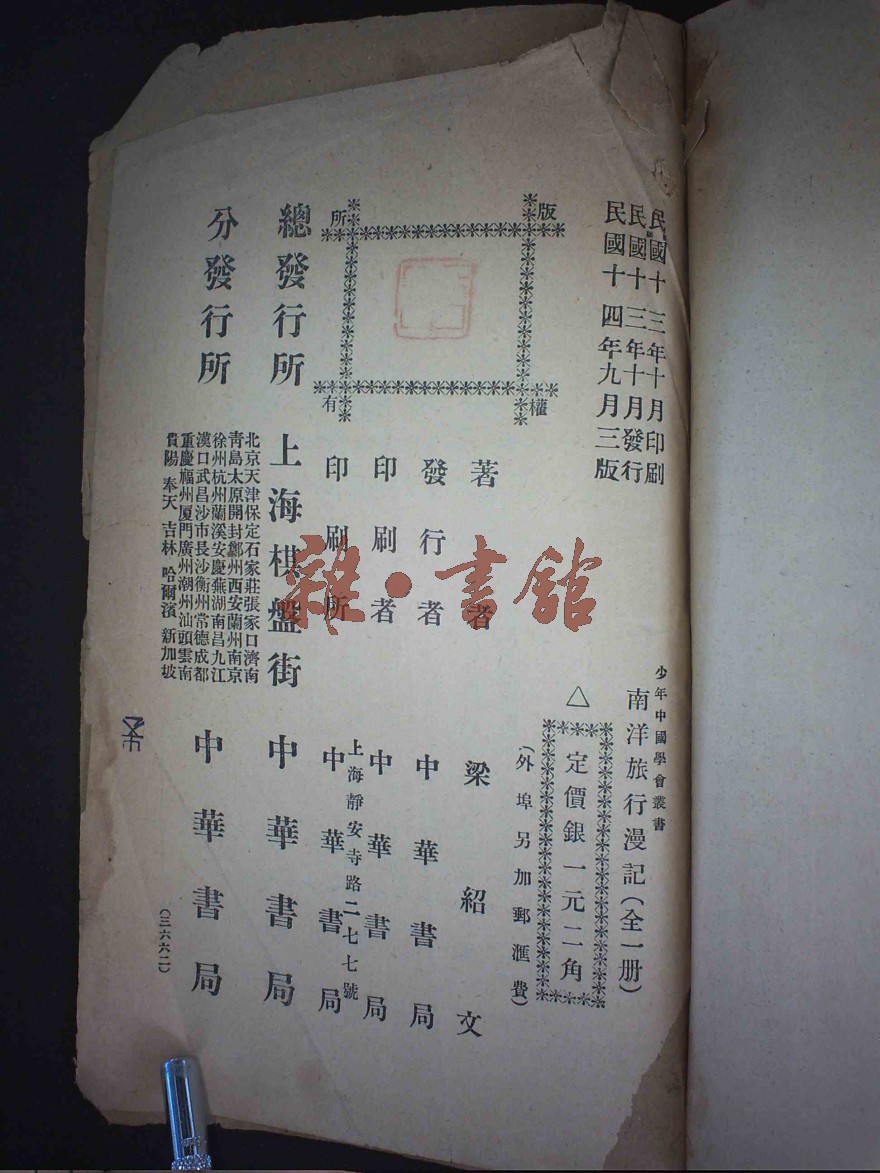 民國十三年十月印刷
民國十三年十月發行
民國十四年九月三版
少年中國學會叢書
南洋旅行漫記（全一册）
△
定價銀一元二角
（外埠另加郵滙費）
版權所有
著者 梁紹文
發行者 中華書局
印刷者 中華書局
印刷所 上海靜安寺路二七七號 中華書局
總發行所 上海棋盤街 中華書局
分發行所 中華書局
北京天津保定石家莊張家口濟南
青島太原開封鄭州西安蘭州南京
徐州杭州蘭溪安慶蕪湖南昌九江
漢口武昌沙市長沙衡州常德成都
重慶福州厦門廣州潮州汕頭雲南
貴陽 奉天 吉林 哈爾濱 新加坡
（三六六二）
雜·書館